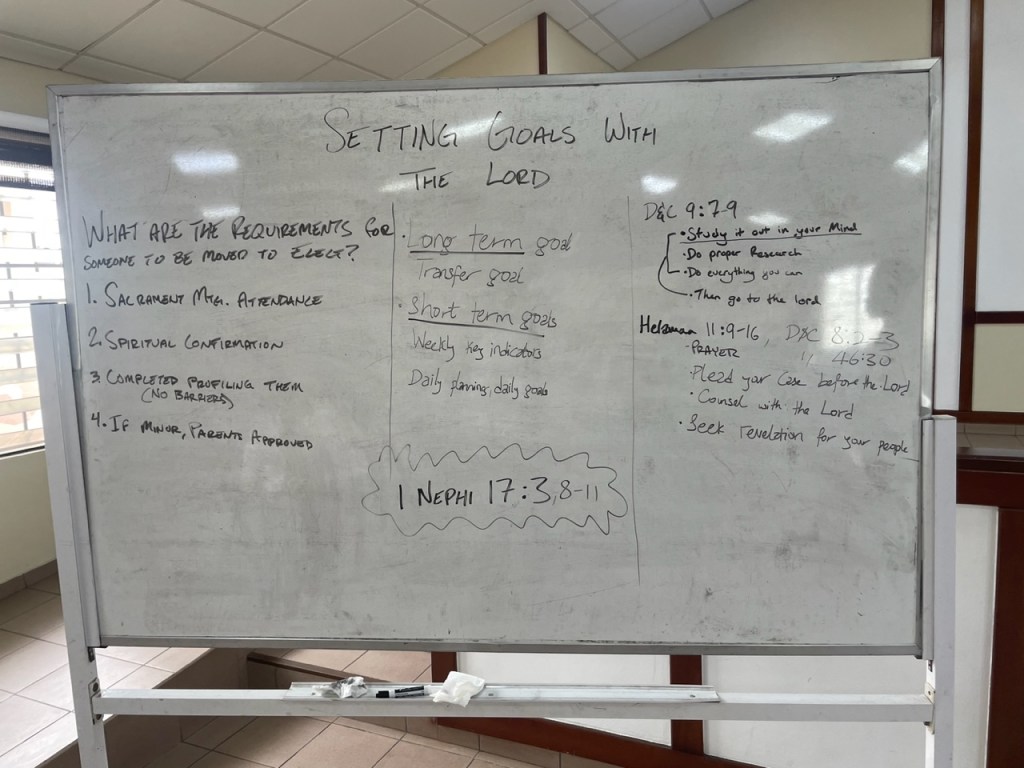 SETTING GOALS WITH
THE LORD
WHAT ARE THE REQUIREMENTS FOR
SOMEONE TO BE MOVED TO ELECT?
1. SACRAMENT MTG. ATTENDANCE
2. SPIRITUAL CONFIRMATION
3. COMPLETED PROFILING THEM
(NO BARRIERS)
4. IF MINOR, PARENTS APPROVED
• Long term goal
Transfer goal
• Short term goals
Weekly key indicators
Daily planning, daily goals
1 NEPHI 17:3, 8-11
D&C 9:7-9
• Study it out in your Mind
• Do proper Research
• Do everything you can
• Then go to the lord
Helaman 11:9-16, D&C 8:2-3
• PRAYER " 46:30
• Plead your Case before the Lord
• Counsel with the Lord
• Seek revelation for your people